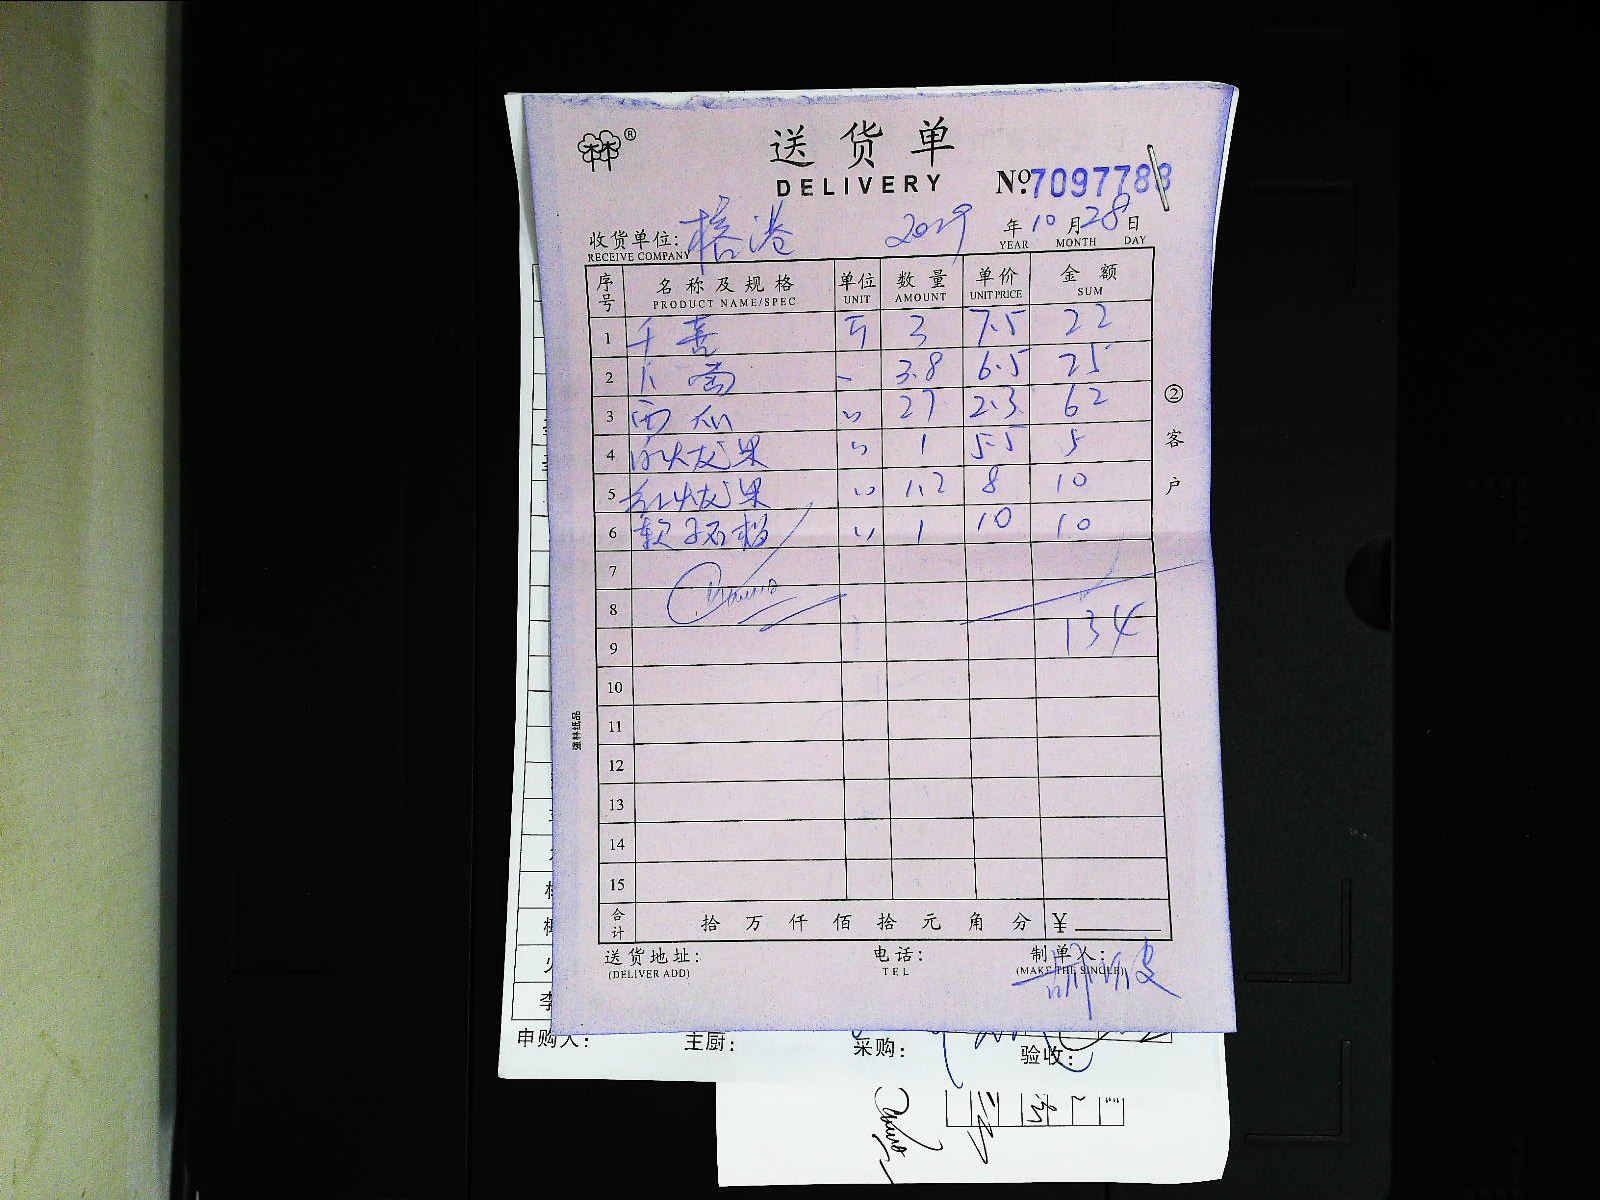 林林®
送货单
DELIVERY
№:7097788
收货单位: 榕港 2019 年 10 月 28 日
RECEIVE COMPANY YEAR MONTH DAY
序号 名称及规格 单位 数量 单价 金额
PRODUCT NAME/SPEC UNIT AMOUNT UNIT PRICE SUM
1 千喜 斤 3 7.5 22
2 3.8 6.5 25
3 西瓜 〃 27 2.3 62
4 白火龙果 〃 1 5.5 5
5 红火龙果 〃 1.2 8 10
6 软子石榴 〃 1 10 10
7
8
9 134
10
11
12
13
14
15
合计 拾 万 仟 佰 拾 元 角 分 ¥
②客户
强林纸品
送货地址: 电话: 制单人:
(DELIVER ADD) TEL (MAKE THE SINGLE)
李
申购人: 主厨: 采购: 验收: